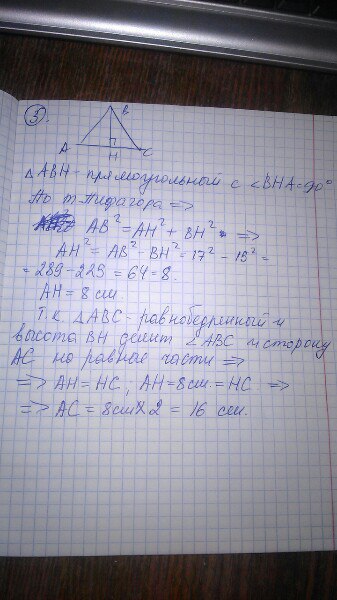 3.
B
A
H
C
△ABH - прямоугольный с ∠BHA=90°
По т. Пифагора =>
AB² = AH² + BH² =>
AH² = AB² - BH² = 17² - 15² =
= 289 - 225 = 64 = 8.
AH = 8 см.
Т.к △ABC - равнобедренный и
высота BH делит ∠ABC и сторону
AC на равные части =>
=> AH = HC, AH = 8 см. = HC =>
=> AC = 8 см × 2 = 16 см.